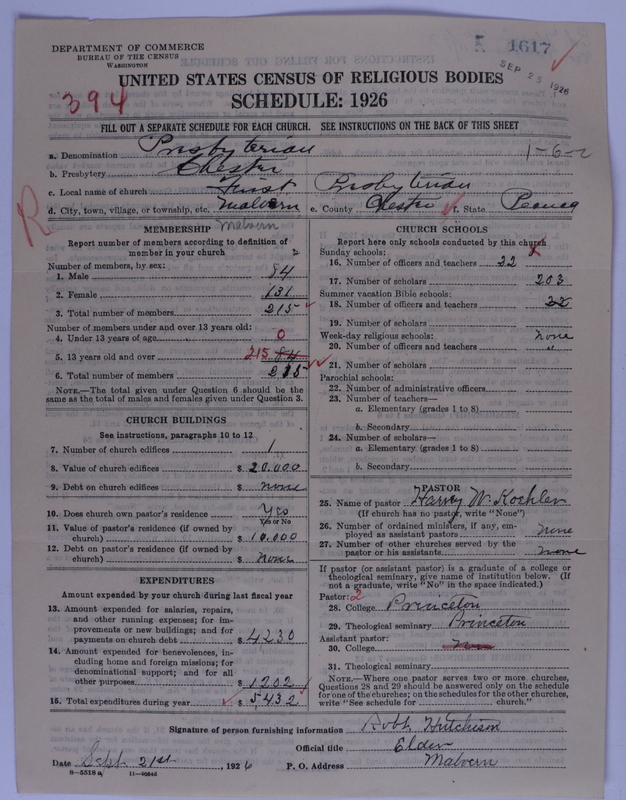 DEPARTMENT OF COMMERCE
BUREAU OF THE CENSUS
WASHINGTON
1617
SEP 25 1926
UNITED STATES CENSUS OF RELIGIOUS BODIES
394
SCHEDULE: 1926
FILL OUT A SEPARATE SCHEDULE FOR EACH CHURCH. SEE INSTRUCTIONS ON THE BACK OF THIS SHEET
a. Denomination Presbyterian 1-6-2
b. Presbytery Chester
c. Local name of church First Presbyterian
d. City, town, village, or township, etc. Malvern e. County Chester f. State Penna
R
Malvern
MEMBERSHIP
Report number of members according to definition of member in your church
Number of members, by sex:
1. Male 84
2. Female 131
3. Total number of members 215
Number of members under and over 13 years old:
4. Under 13 years of age 0
5. 13 years old and over 215 84
6. Total number of members 215
NOTE.—The total given under Question 6 should be the same as the total of males and females given under Question 3.
CHURCH BUILDINGS
See instructions, paragraphs 10 to 12
7. Number of church edifices 1
8. Value of church edifices $ 20.000
9. Debt on church edifices $ none
10. Does church own pastor's residence Yes
Yes or No
11. Value of pastor's residence (if owned by church) $ 10.000
12. Debt on pastor's residence (if owned by church) $ none
EXPENDITURES
Amount expended by your church during last fiscal year
13. Amount expended for salaries, repairs, and other running expenses; for improvements or new buildings; and for payments on church debt $ 4230
14. Amount expended for benevolences, including home and foreign missions; for denominational support; and for all other purposes $ 1202
15. Total expenditures during year $ 5432
CHURCH SCHOOLS
Report here only schools conducted by this church
Sunday schools:
16. Number of officers and teachers 22
17. Number of scholars 203
Summer vacation Bible schools:
18. Number of officers and teachers 22
19. Number of scholars
Week-day religious schools: none
20. Number of officers and teachers "
21. Number of scholars
Parochial schools:
22. Number of administrative officers
23. Number of teachers—
a. Elementary (grades 1 to 8)
b. Secondary
24. Number of scholars—
a. Elementary (grades 1 to 8)
b. Secondary
PASTOR
25. Name of pastor Harvey W. Koehler
(If church has no pastor, write "None")
26. Number of ordained ministers, if any, employed as assistant pastors none
27. Number of other churches served by the pastor or his assistants none
If pastor (or assistant pastor) is a graduate of a college or theological seminary, give name of institution below. (If not a graduate, write "No" in the space indicated.)
Pastor: 2
28. College Princeton
29. Theological seminary Princeton
Assistant pastor:
30. College
31. Theological seminary
NOTE.—Where one pastor serves two or more churches, Questions 28 and 29 should be answered only on the schedule for one of the churches; on the schedules for the other churches, write "See schedule for church."
Signature of person furnishing information Robt Hutchison
Official title Elder
Date Sept. 21st, 1926 P. O. Address Malvern
8—5518 a 11—9064b